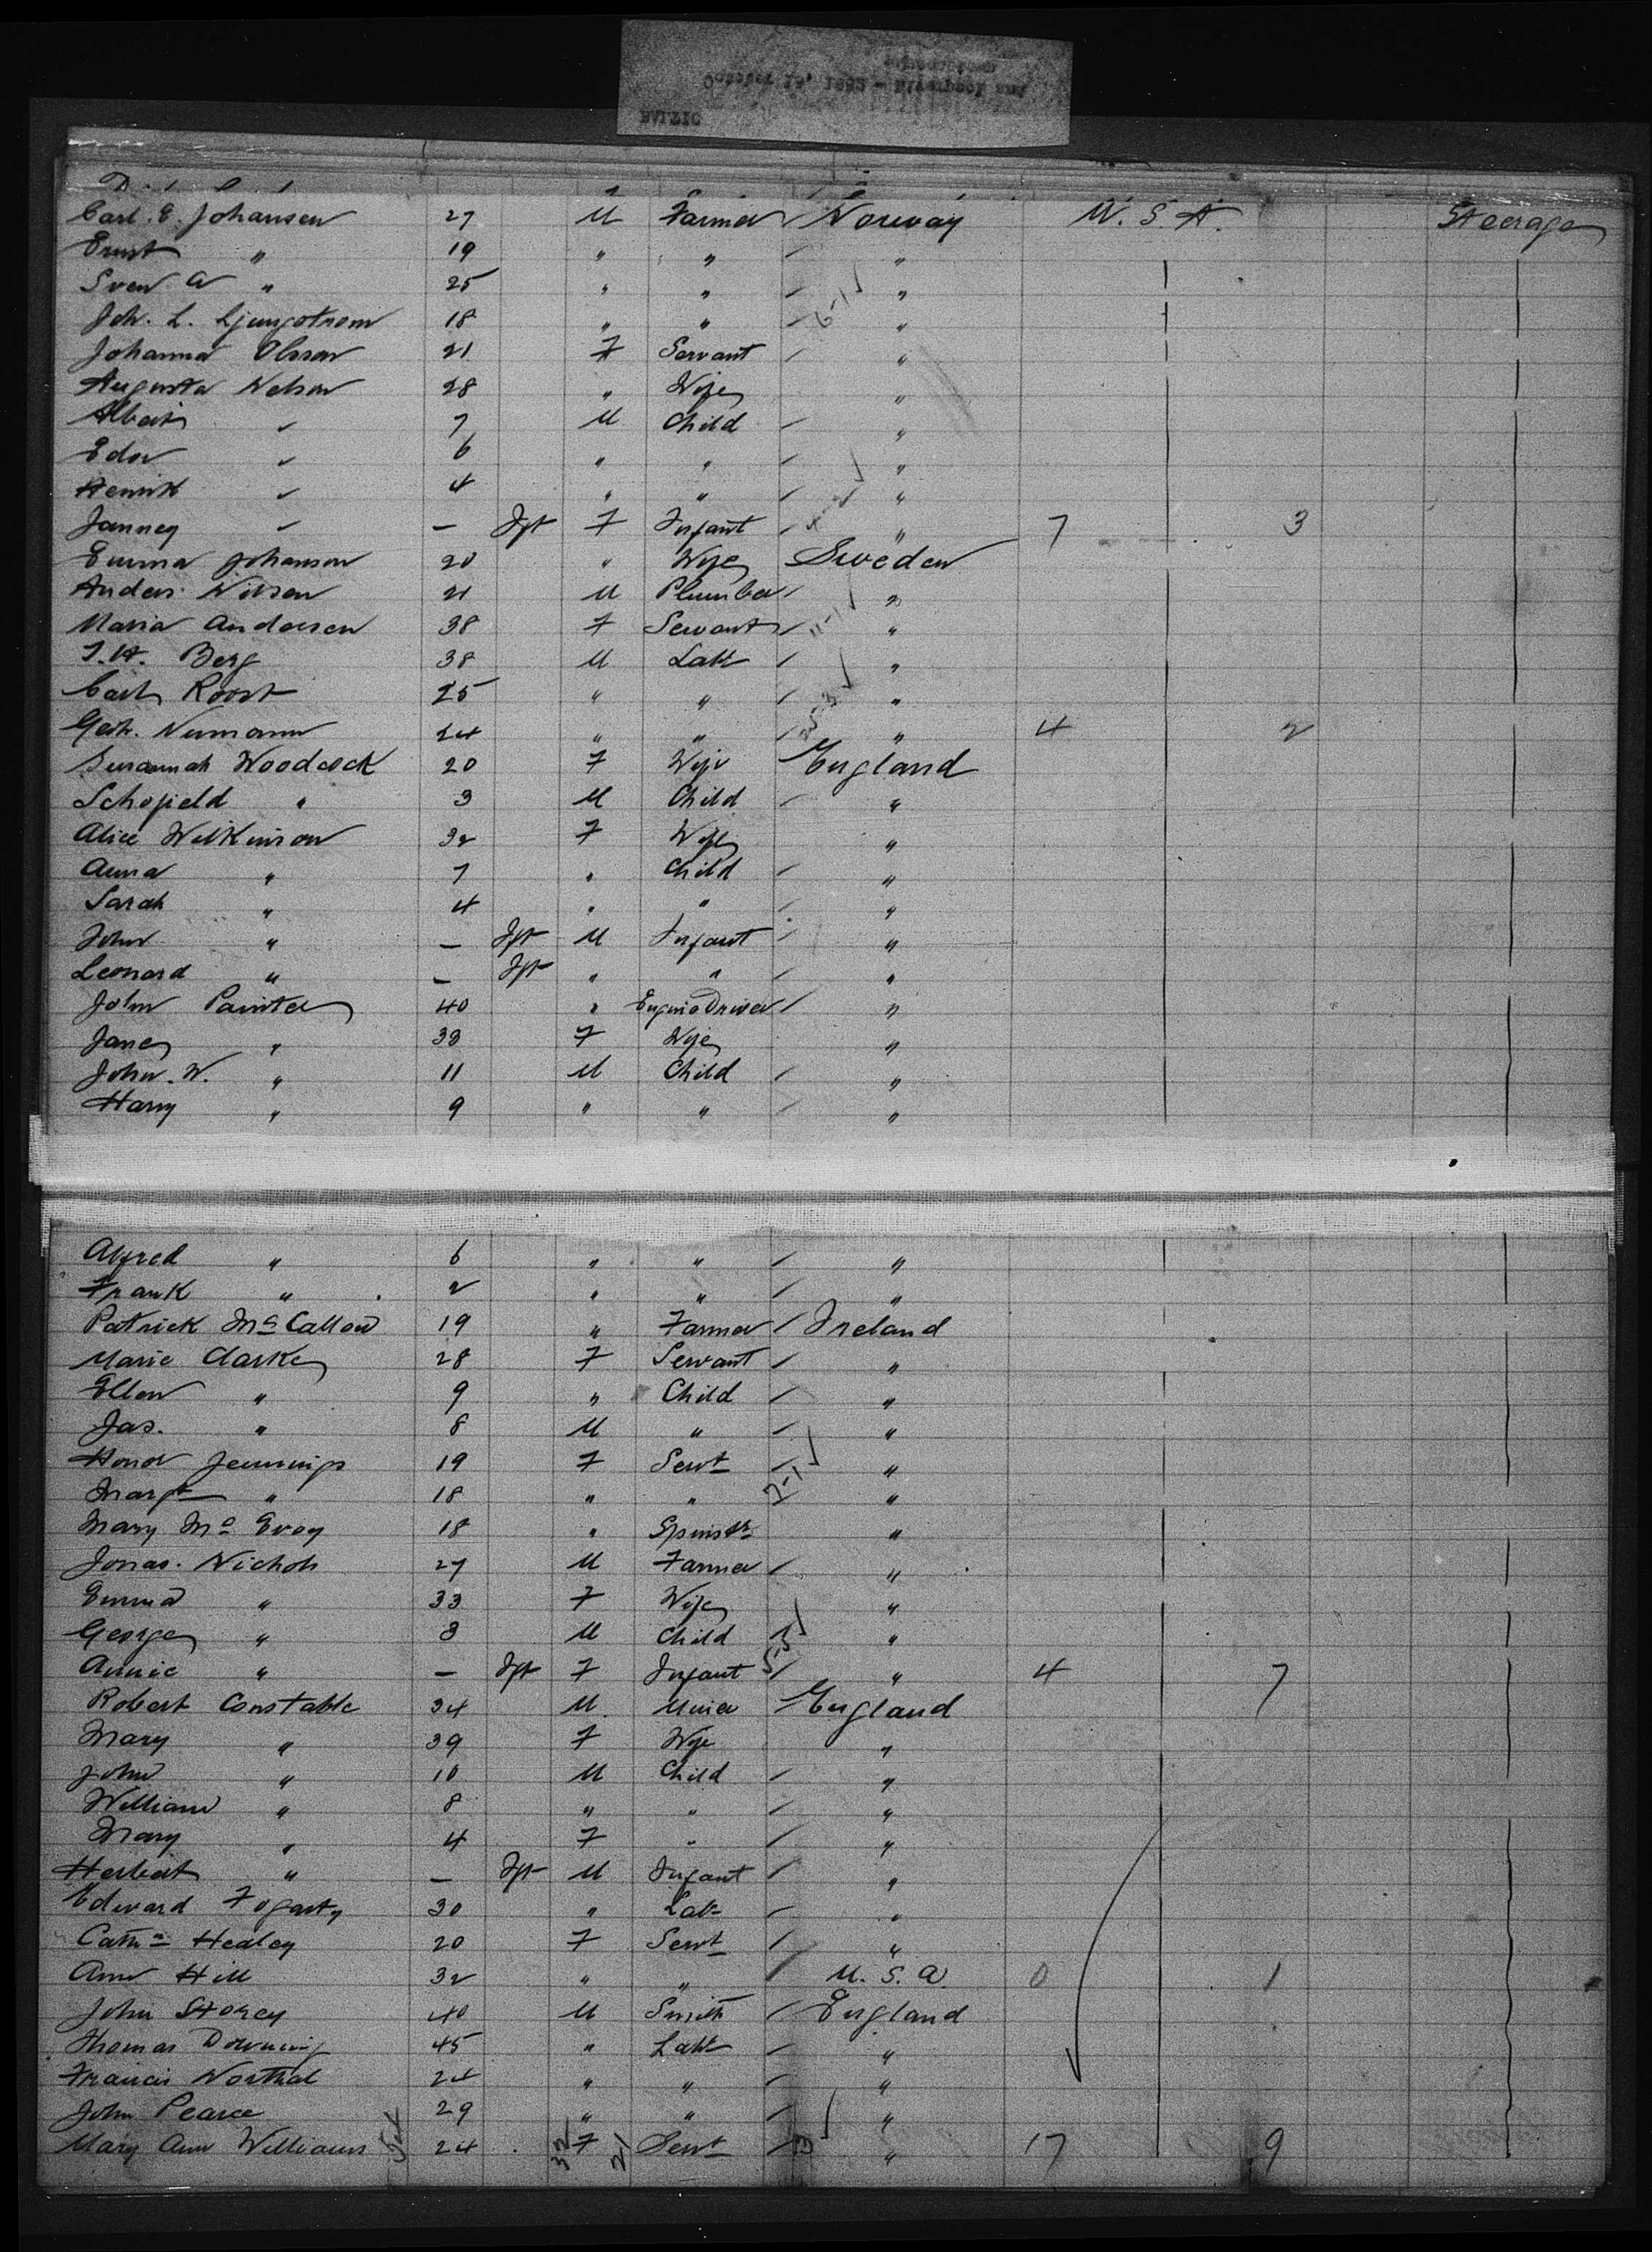 Carl. E. Johansen 27 M Farmer Norway U. S. A. Steerage
Ernst " 19 " " "
Sven A " 25 " " "
Joh. L. Ljungstrom 18 " " "
Johanna Olsson 21 F Servant "
Augusta Nelson 28 " Wife "
Albert " 7 M Child "
Edor " 6 " " "
Henrik " 4 " " "
Janney " — Ift F Infant " 7 3
Emma Johanson 20 " Wife Sweden
Anders Nilsen 21 M Plumber "
Maria Andersen 38 F Servant "
J. H. Berg 38 M Labr "
Carl Roost 25 " " "
Geth. Numann 24 " " " 4 2
Susannah Woodcock 20 F Wife England
Schofield " 3 M Child "
Alice Wilkinson 32 F Wife "
Anna " 7 " Child "
Sarah " 4 " " "
John " — Ift M Infant "
Leonard " — Ift " " "
John Painter 40 " Engine Driver "
Jane " 38 F Wife "
John. W. " 11 M Child "
Harry " 9 " " "
Alfred " 6 " " "
Frank " 2 " " "
Patrick Mc Callow 19 " Farmer Ireland
Marie Clarke 28 F Servant "
Ellen " 9 " Child "
Jas. " 8 M " "
Honor Jennings 19 F Servt "
Margt " 18 " " "
Mary Mc Evoy 18 " Spinstr "
Jonas. Nichols 27 M Farmer "
Emma " 33 F Wife "
George " 3 M Child "
Annie " — Ift F Infant " 4 7
Robert Constable 34 M Miner England
Mary " 39 F Wife "
John " 10 M Child "
William " 8 " " "
Mary " 4 F " "
Herbert " — Ift M Infant "
Edward Fogarty 30 " Labr "
Cathn Healey 20 F Servt "
Ann Hill 32 " " U. S. A 0 1
John Storey 40 M Smith England
Thomas Downing 45 " Labr "
Francis Northal 24 " " "
John Pearce 29 " " "
Mary Ann Williams 24 F Servt " 17 9